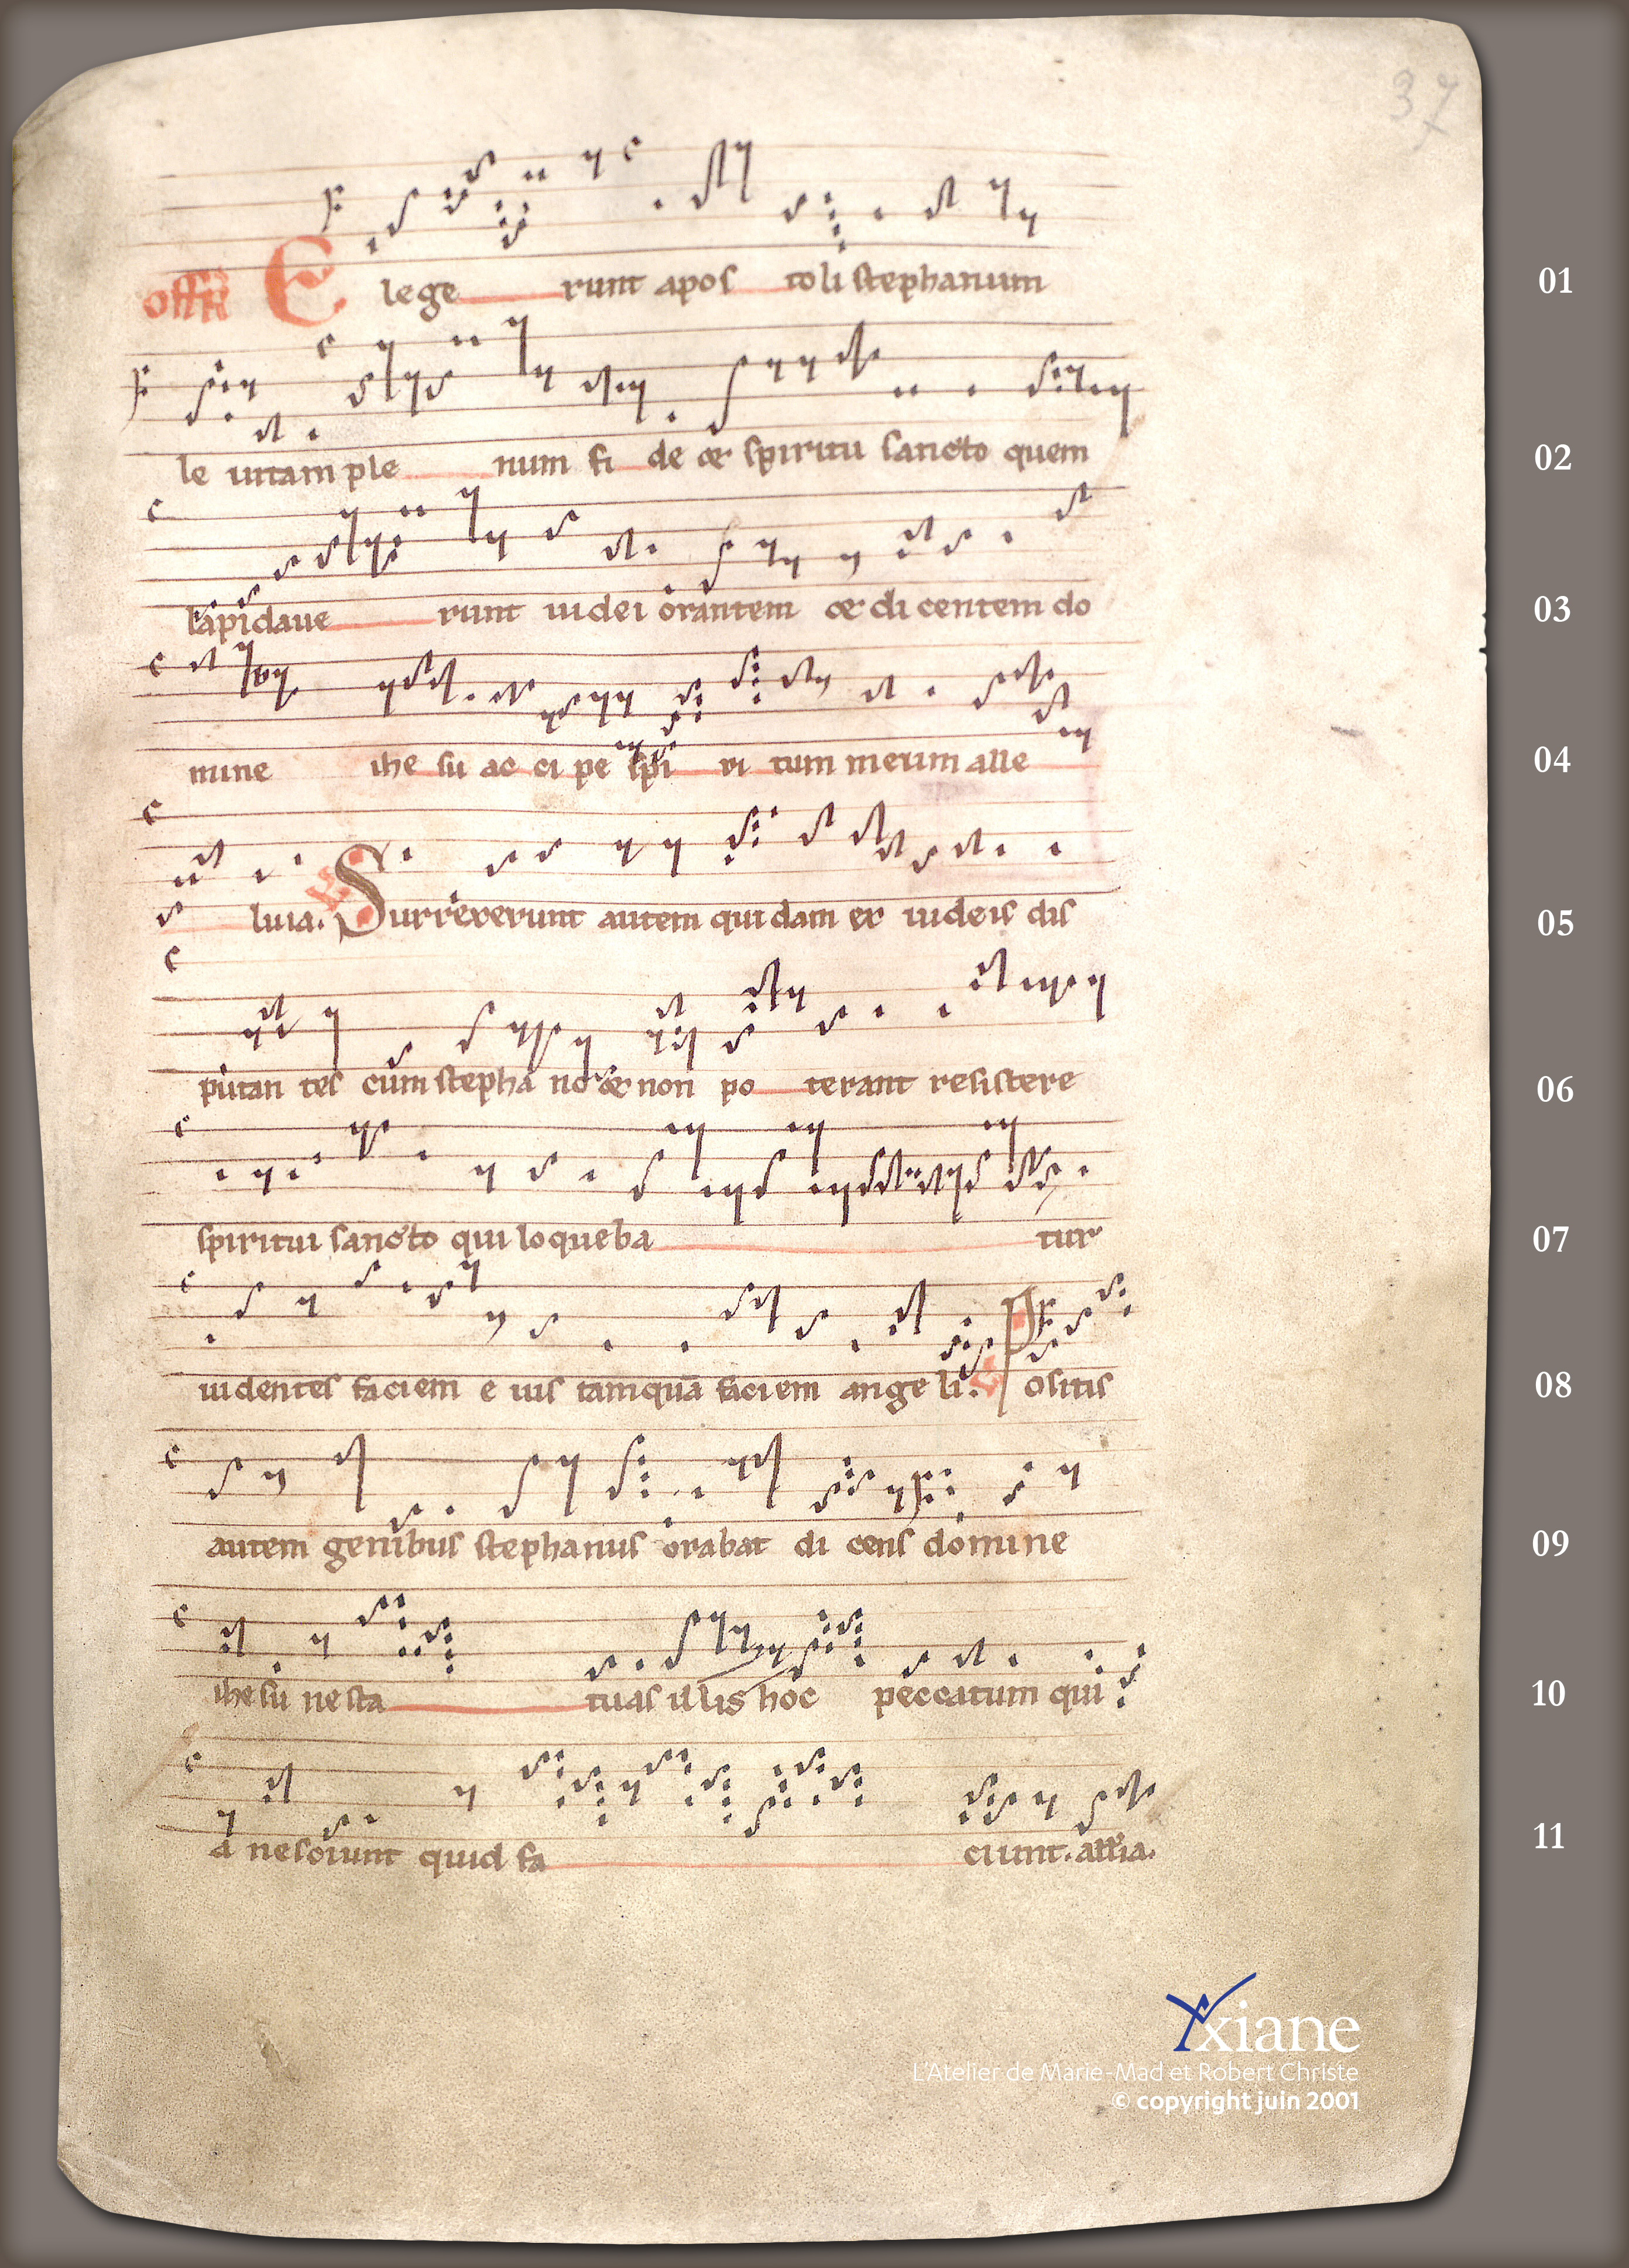 37
offr E lege runt apos toli stephanum 01
le uitam ple num fi de et spiritu sancto quem 02
lapidaue runt iudei orantem et di centem do 03
mine ihe su ac ci pe spi ri tum meum alle 04
luia. Surrexerunt autem quidam ex iudeis dis 05
putan tes cum stepha no et non po terant resistere 06
spiritui sancto qui loqueba tur 07
uidentes faciem e ius tamquā faciem ange li. Positis 08
autem genibus stephanus orabat di cens domine 09
ihesu ne sta tuas illis hoc peccatum qui 10
a nesciunt quid fa ciunt. 11
Yxiane
L'Atelier de Marie-Mad et Robert Christe
© copyright juin 2001